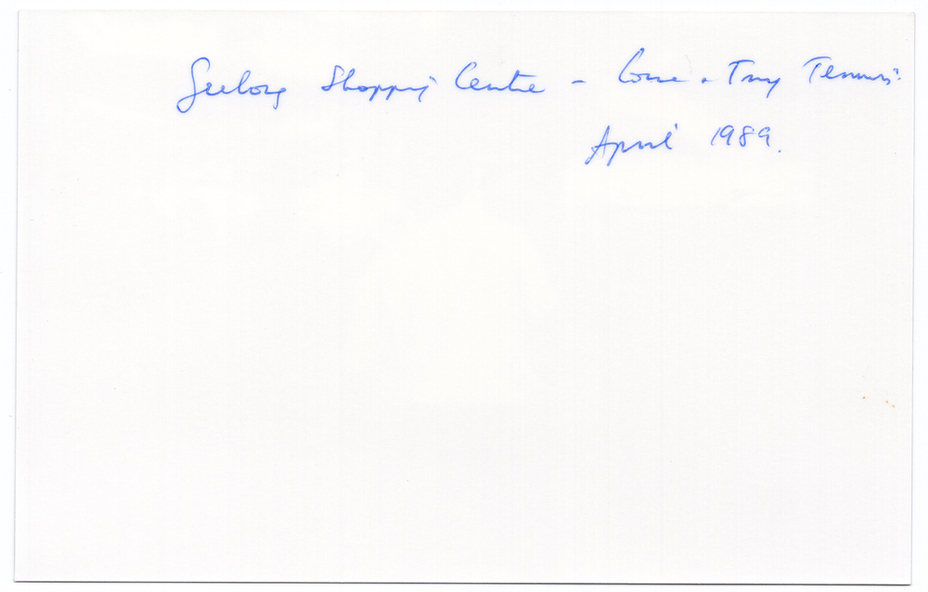 Geelong Shopping Centre - Come & Try Tennis.
April 1989.